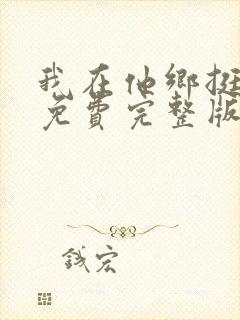 我在他鄉挺
免費完整版
宏